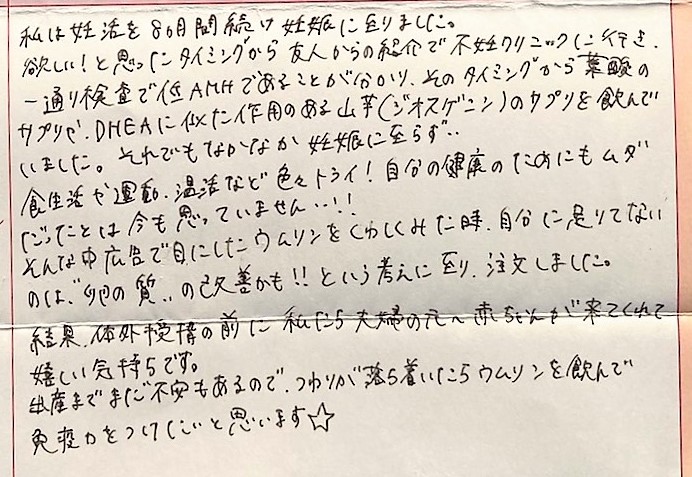 私は妊活を8カ月間続け妊娠に至りました。
欲しい！と思ったタイミングから友人からの紹介で不妊クリニックに行き、
一通り検査で低AMHであることが分かり、そのタイミングから葉酸の
サプリや、DHEAに似た作用のある山芋（ジオスゲニン）のサプリを飲んで
いました。それでもなかなか妊娠に至らず‥
食生活や運動、温活など色々トライ！自分の健康のためにもムダ
だったとは今も思っていません‥!!
そんな中広告で目にしたウムリンをくわしくみた時、自分に足りてない
のは、"卵の質"の改善かも!!という考えに至り、注文しました。
結果、体外受精の前に私たち夫婦の元へ赤ちゃんが来てくれて
嬉しい気持ちです。
出産までまだ不安もあるので、つわりが落ち着いたらウムリンを飲んで
免疫力をつけたいと思います☆